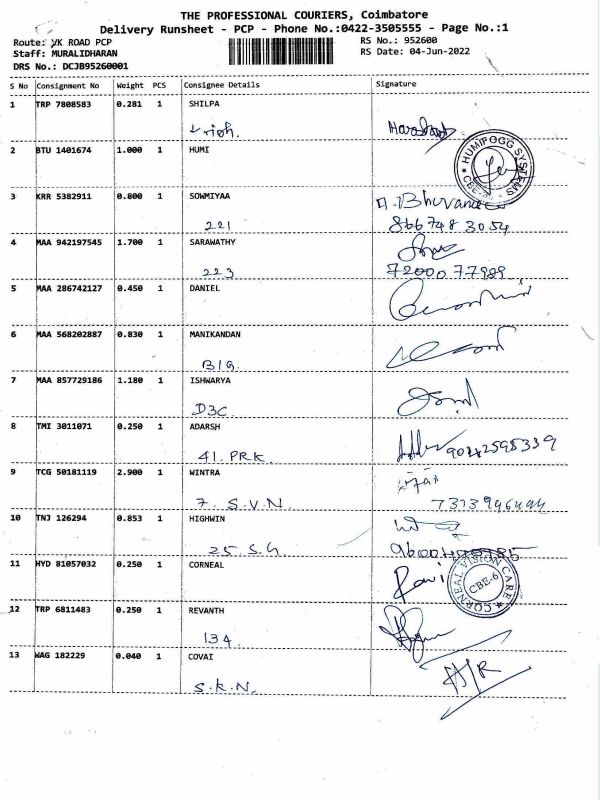 THE PROFESSIONAL COURIERS, Coimbatore
Delivery Runsheet - PCP - Phone No.:0422-3505555 - Page No.:1
Route: VK ROAD PCP
RS No.: 952600
Staff: MURALIDHARAN
RS Date: 04-Jun-2022
DRS No.: DCJB95260001
S No Consignment No Weight PCS Consignee Details Signature
1 TRP 7808583 0.281 1 SHILPA
2 BTU 1401674 1.000 1 HUMI
HUMIFOGG SYSTEMS
CBE-6
3 KRR 5382911 0.800 1 SOWMIYAA
221 8667483054
4 MAA 942197545 1.700 1 SARAWATHY
223 7200077989
5 MAA 286742127 0.450 1 DANIEL
6 MAA 568202887 0.830 1 MANIKANDAN
B1G.
7 MAA 857729186 1.180 1 ISHWARYA
D3C
8 TMI 3011071 0.250 1 ADARSH
41. PRK. 9042595339
9 TCG 50181119 2.900 1 WINTRA
7. S.V.N.
10 TNJ 126294 0.853 1 HIGHWIN
25 S.G.
11 HYD 81057032 0.250 1 CORNEAL
Ravi
CORNEAL VISION CARE
CBE-6
12 TRP 6811483 0.250 1 REVANTH
134
13 WAG 182229 0.040 1 COVAI
S.K.N.